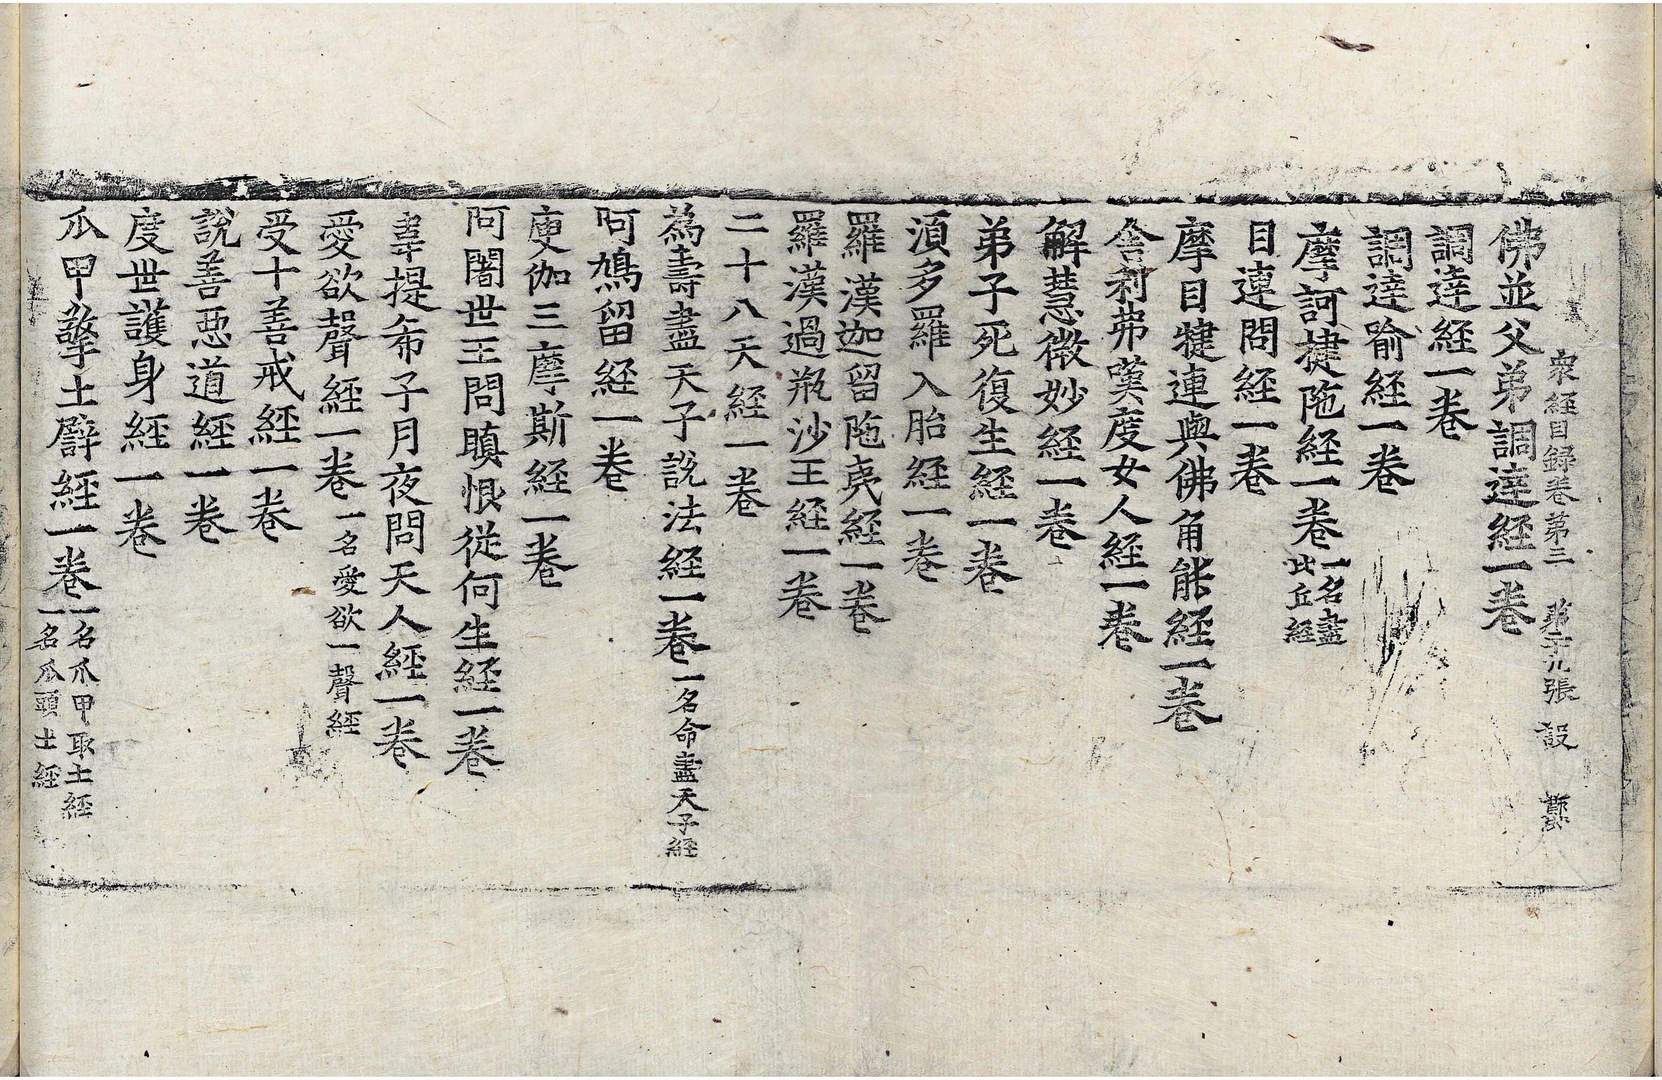 衆経目録卷第三 第二十九張 設
佛並父弟調達経一卷
調達経一卷
調達喻経一卷
摩訶揵陁経一卷一名盡比丘経
目連問経一卷
摩目犍連與佛角能経一卷
舎利弗嘆度女人経一卷
解慧微妙経一卷
弟子死復生経一卷
湏多羅入胎経一卷
羅漢迦留陁夷経一卷
羅漢過瓶沙王経一卷
二十八天経一卷
為壽盡天子說法経一卷一名命盡天子経
阿鳩留経一卷
庾伽三摩斯経一卷
阿闍世王問瞋恨従何生経一卷
韋提希子月夜問天人経一卷
愛欲聲経一卷一名愛欲一聲経
受十善戒経一卷
說善惡道経一卷
度世護身経一卷
爪甲擎土譬経一卷一名爪甲取土経一名爪頭土経